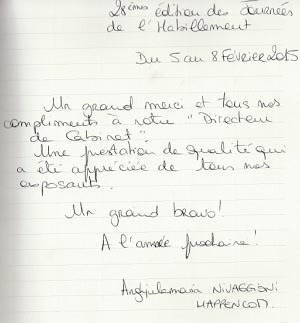 28èmes édition des Journées
de l'Habillement
Du 5 au 8 Février 2015
Un grand merci et tous nos
compliments à notre "Directeur
de Cabinet".
Une prestation de qualité qui
a été appréciée de tous nos
exposants.
Un grand bravo!
A l'année prochaine!
NIVAGGIONI
HAPPENCOM.